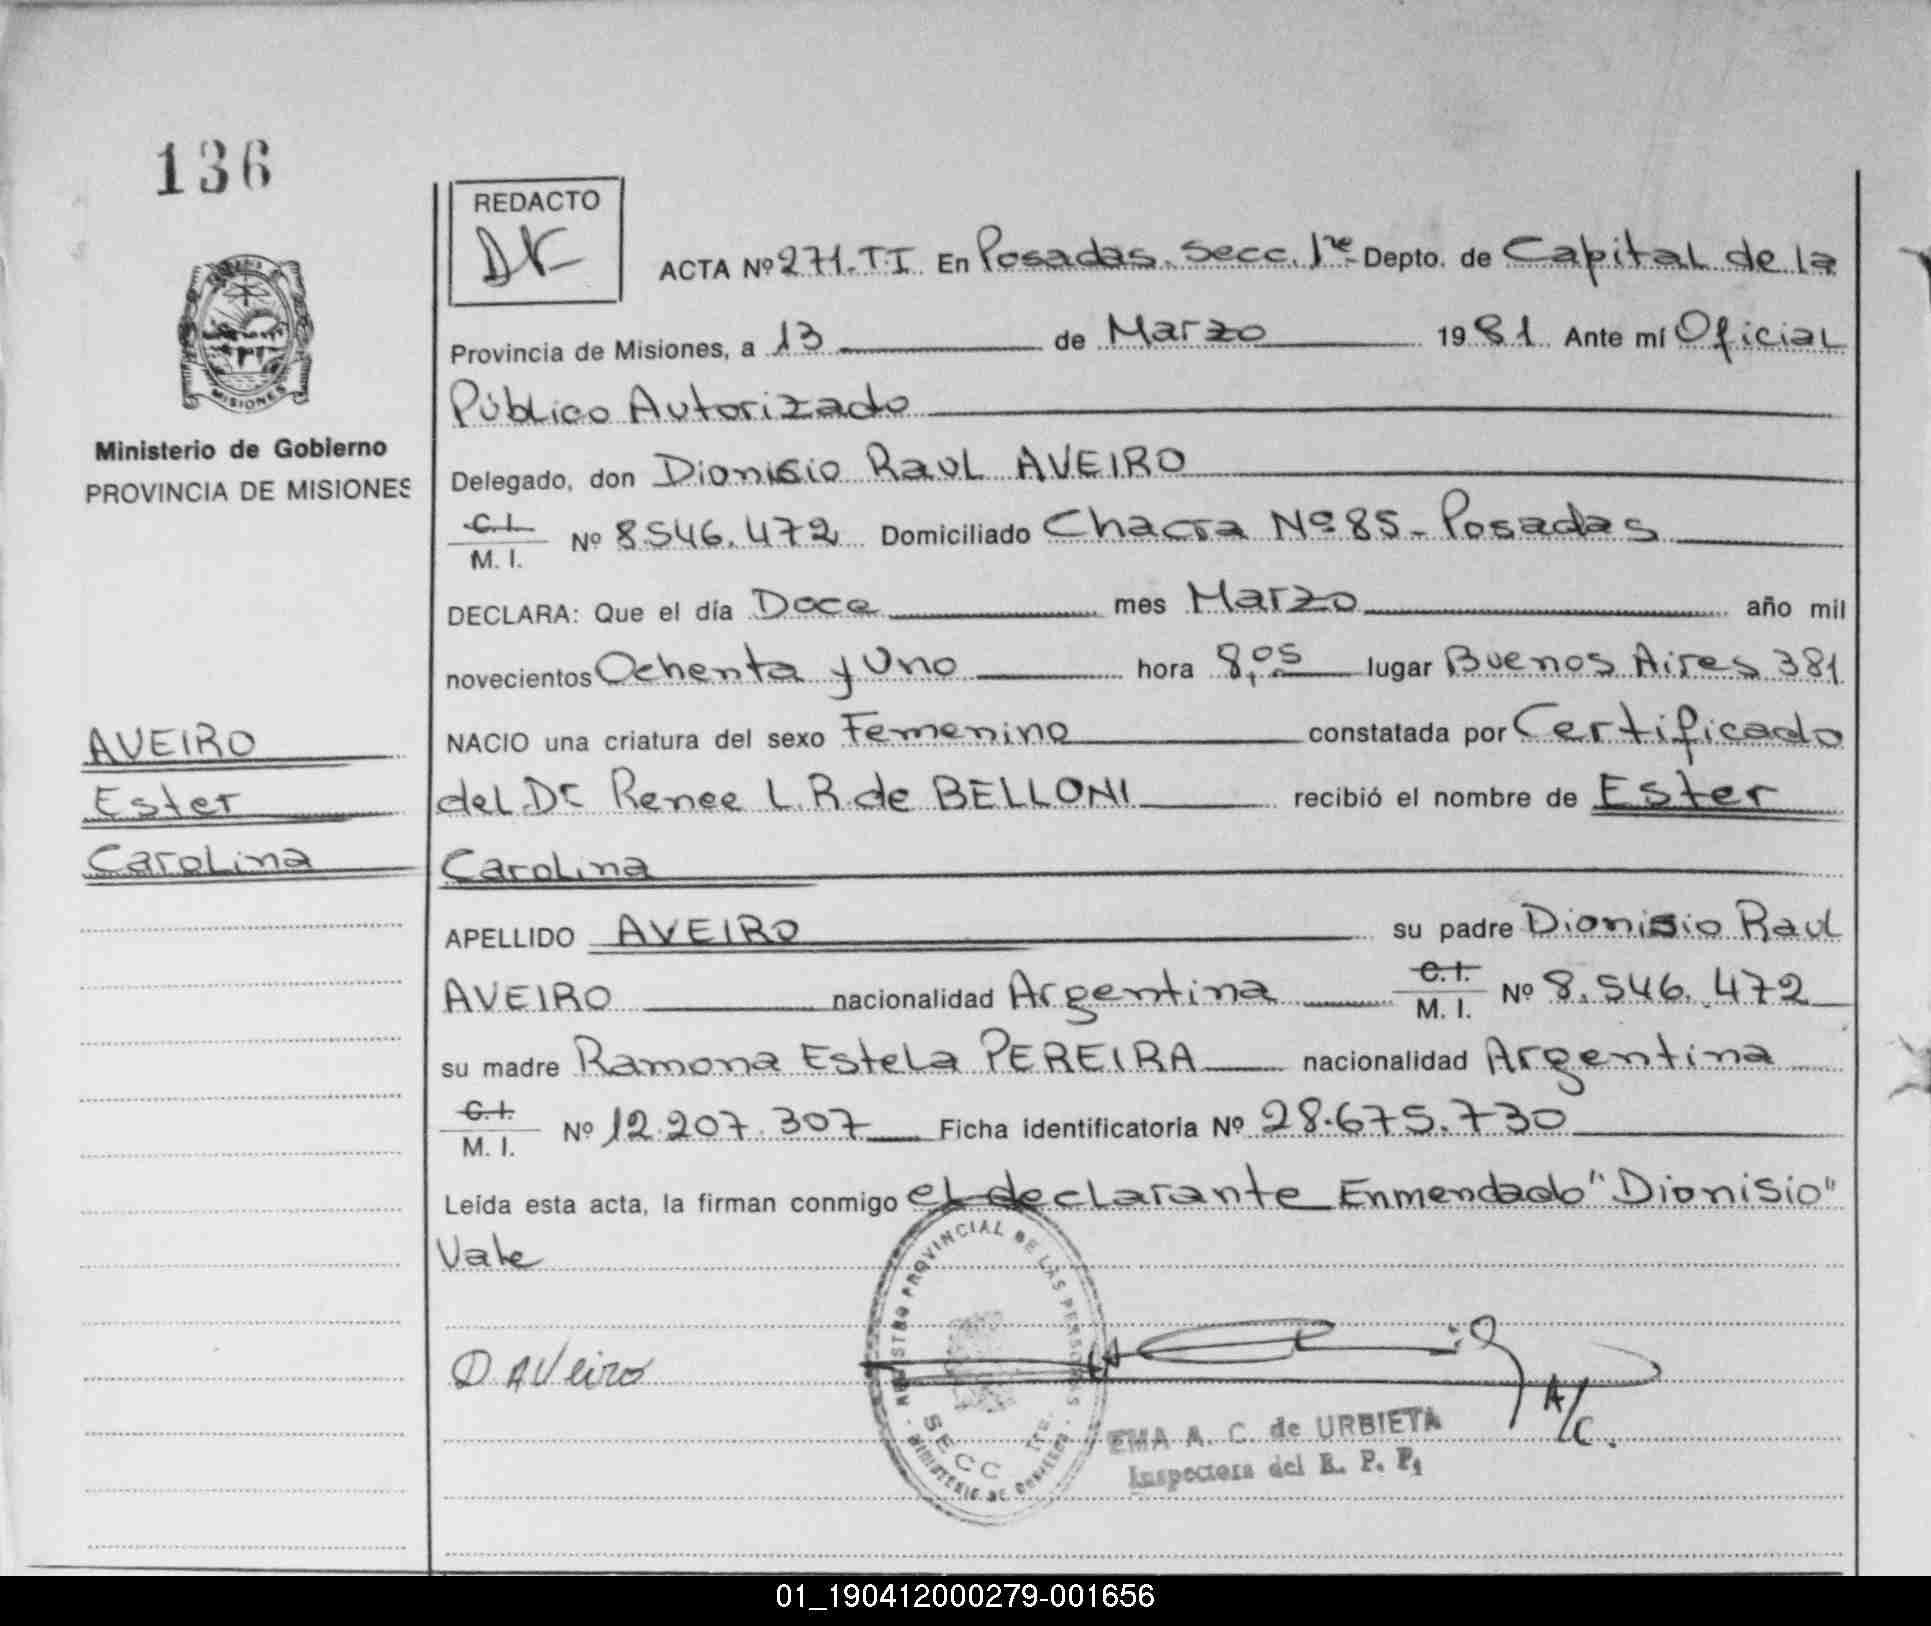 136
REDACTO
ACTA Nº 271. TI. En Posadas. Secc. 1ra Depto. de Capital de la
Provincia de Misiones, a 13 de Marzo 1981. Ante mí Oficial
Público Autorizado
MISIONES
Ministerio de Gobierno
PROVINCIA DE MISIONES
Delegado, don Dionisio Raul AVEIRO
C.I.
M. I. Nº 8.546.472 Domiciliado Chacra Nº 85 - Posadas
DECLARA: Que el día Doce mes Marzo año mil
novecientos Ochenta y Uno hora 8,05 lugar Buenos Aires 381
AVEIRO
Ester
Carolina
NACIO una criatura del sexo Femenino constatada por Certificado
del Dr Renee L. R. de BELLONI recibió el nombre de Ester
Carolina
APELLIDO AVEIRO su padre Dionisio Raul
AVEIRO nacionalidad Argentina C.I. M. I. Nº 8.546.472
su madre Ramona Estela PEREIRA nacionalidad Argentina
C.I.
M. I. Nº 12.207.307 Ficha identificatoria Nº 28.675.730
Leída esta acta, la firman conmigo el declarante Enmendado "Dionisio"
Vale
D. AVeiro
REGISTRO PROVINCIAL DE LAS PERSONAS
SECC
MINISTERIO DE GOBIERNO
A/C.
EMA A. C. de URBIETA
Inspectora del R. P. P.
01_190412000279-001656